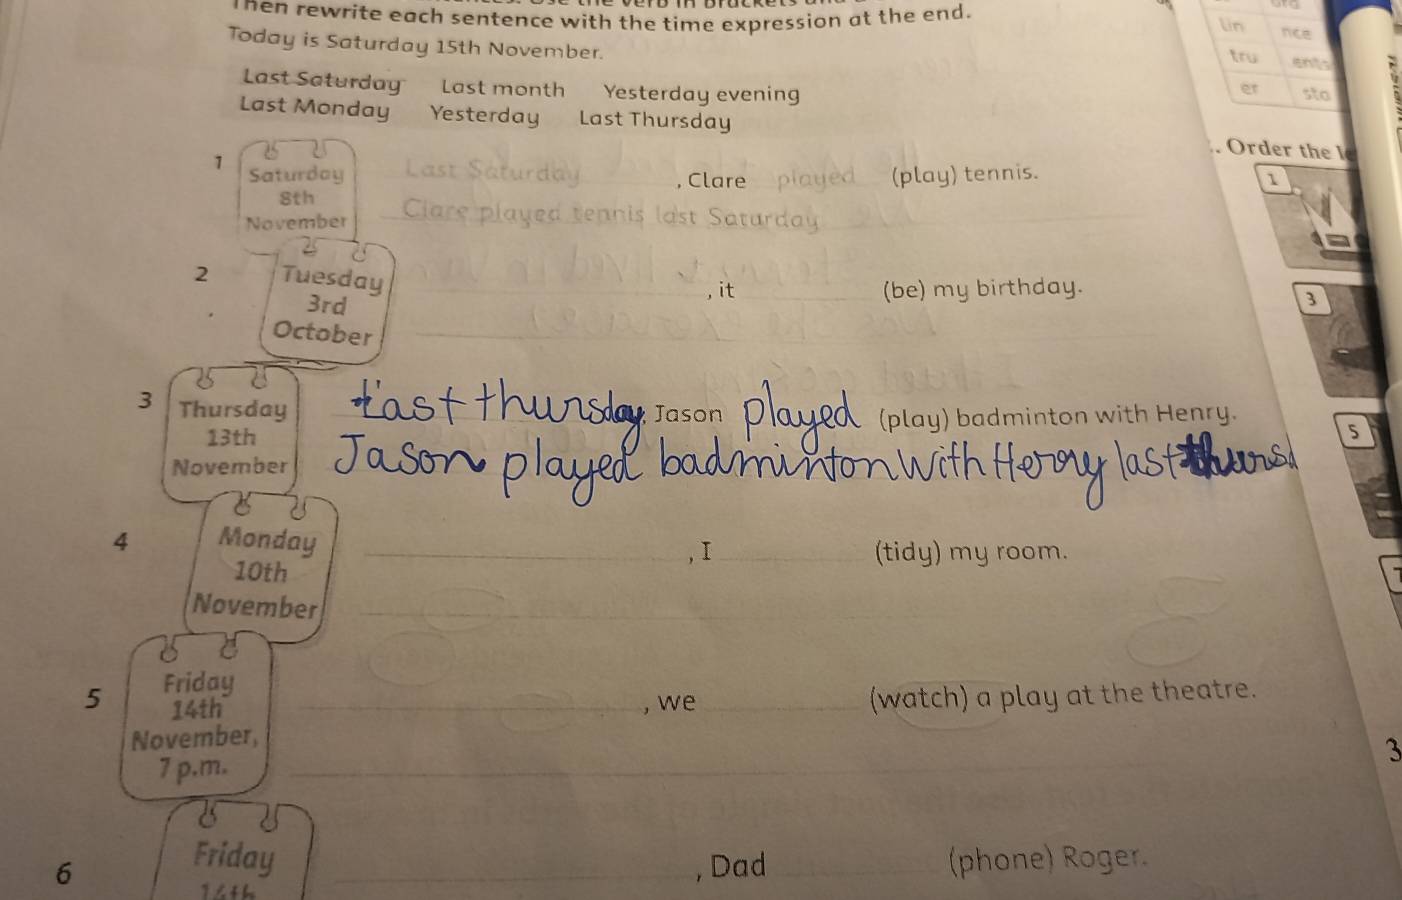 Then rewrite each sentence with the time expression at the end.
Today is Saturday 15th November.
Last Saturday Last month Yesterday evening
Last Monday Yesterday Last Thursday
1 Saturday 8th November Last Saturday, Clare played (play) tennis.
Clare played tennis last Saturday
2 Tuesday 3rd October , it (be) my birthday.
3 Thursday 13th November Last thursday, Jason played (play) badminton with Henry.
Jason played badminton with Henry last thursd
4 Monday 10th November , I (tidy) my room.
5 Friday 14th November, 7 p.m. , we (watch) a play at the theatre.
6 Friday 14th , Dad (phone) Roger.
lin nce
tru ents
er sta
. Order the
1
3
5
3